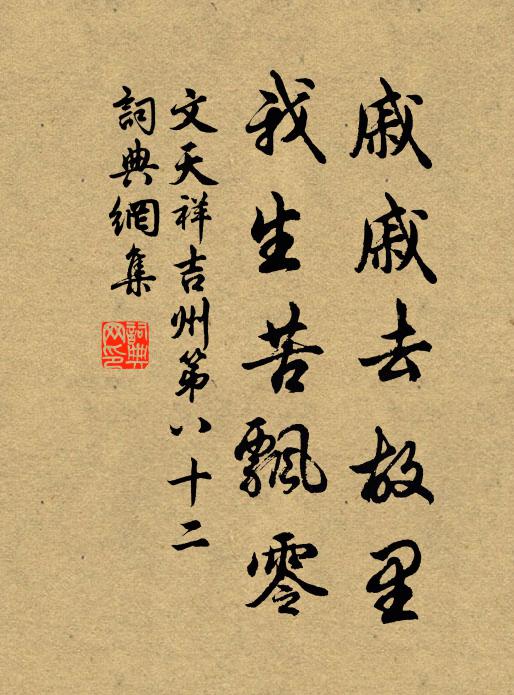 戚戚去故里
我生苦飄零
文天祥吉州第八十二
詞典網集
詞典網印